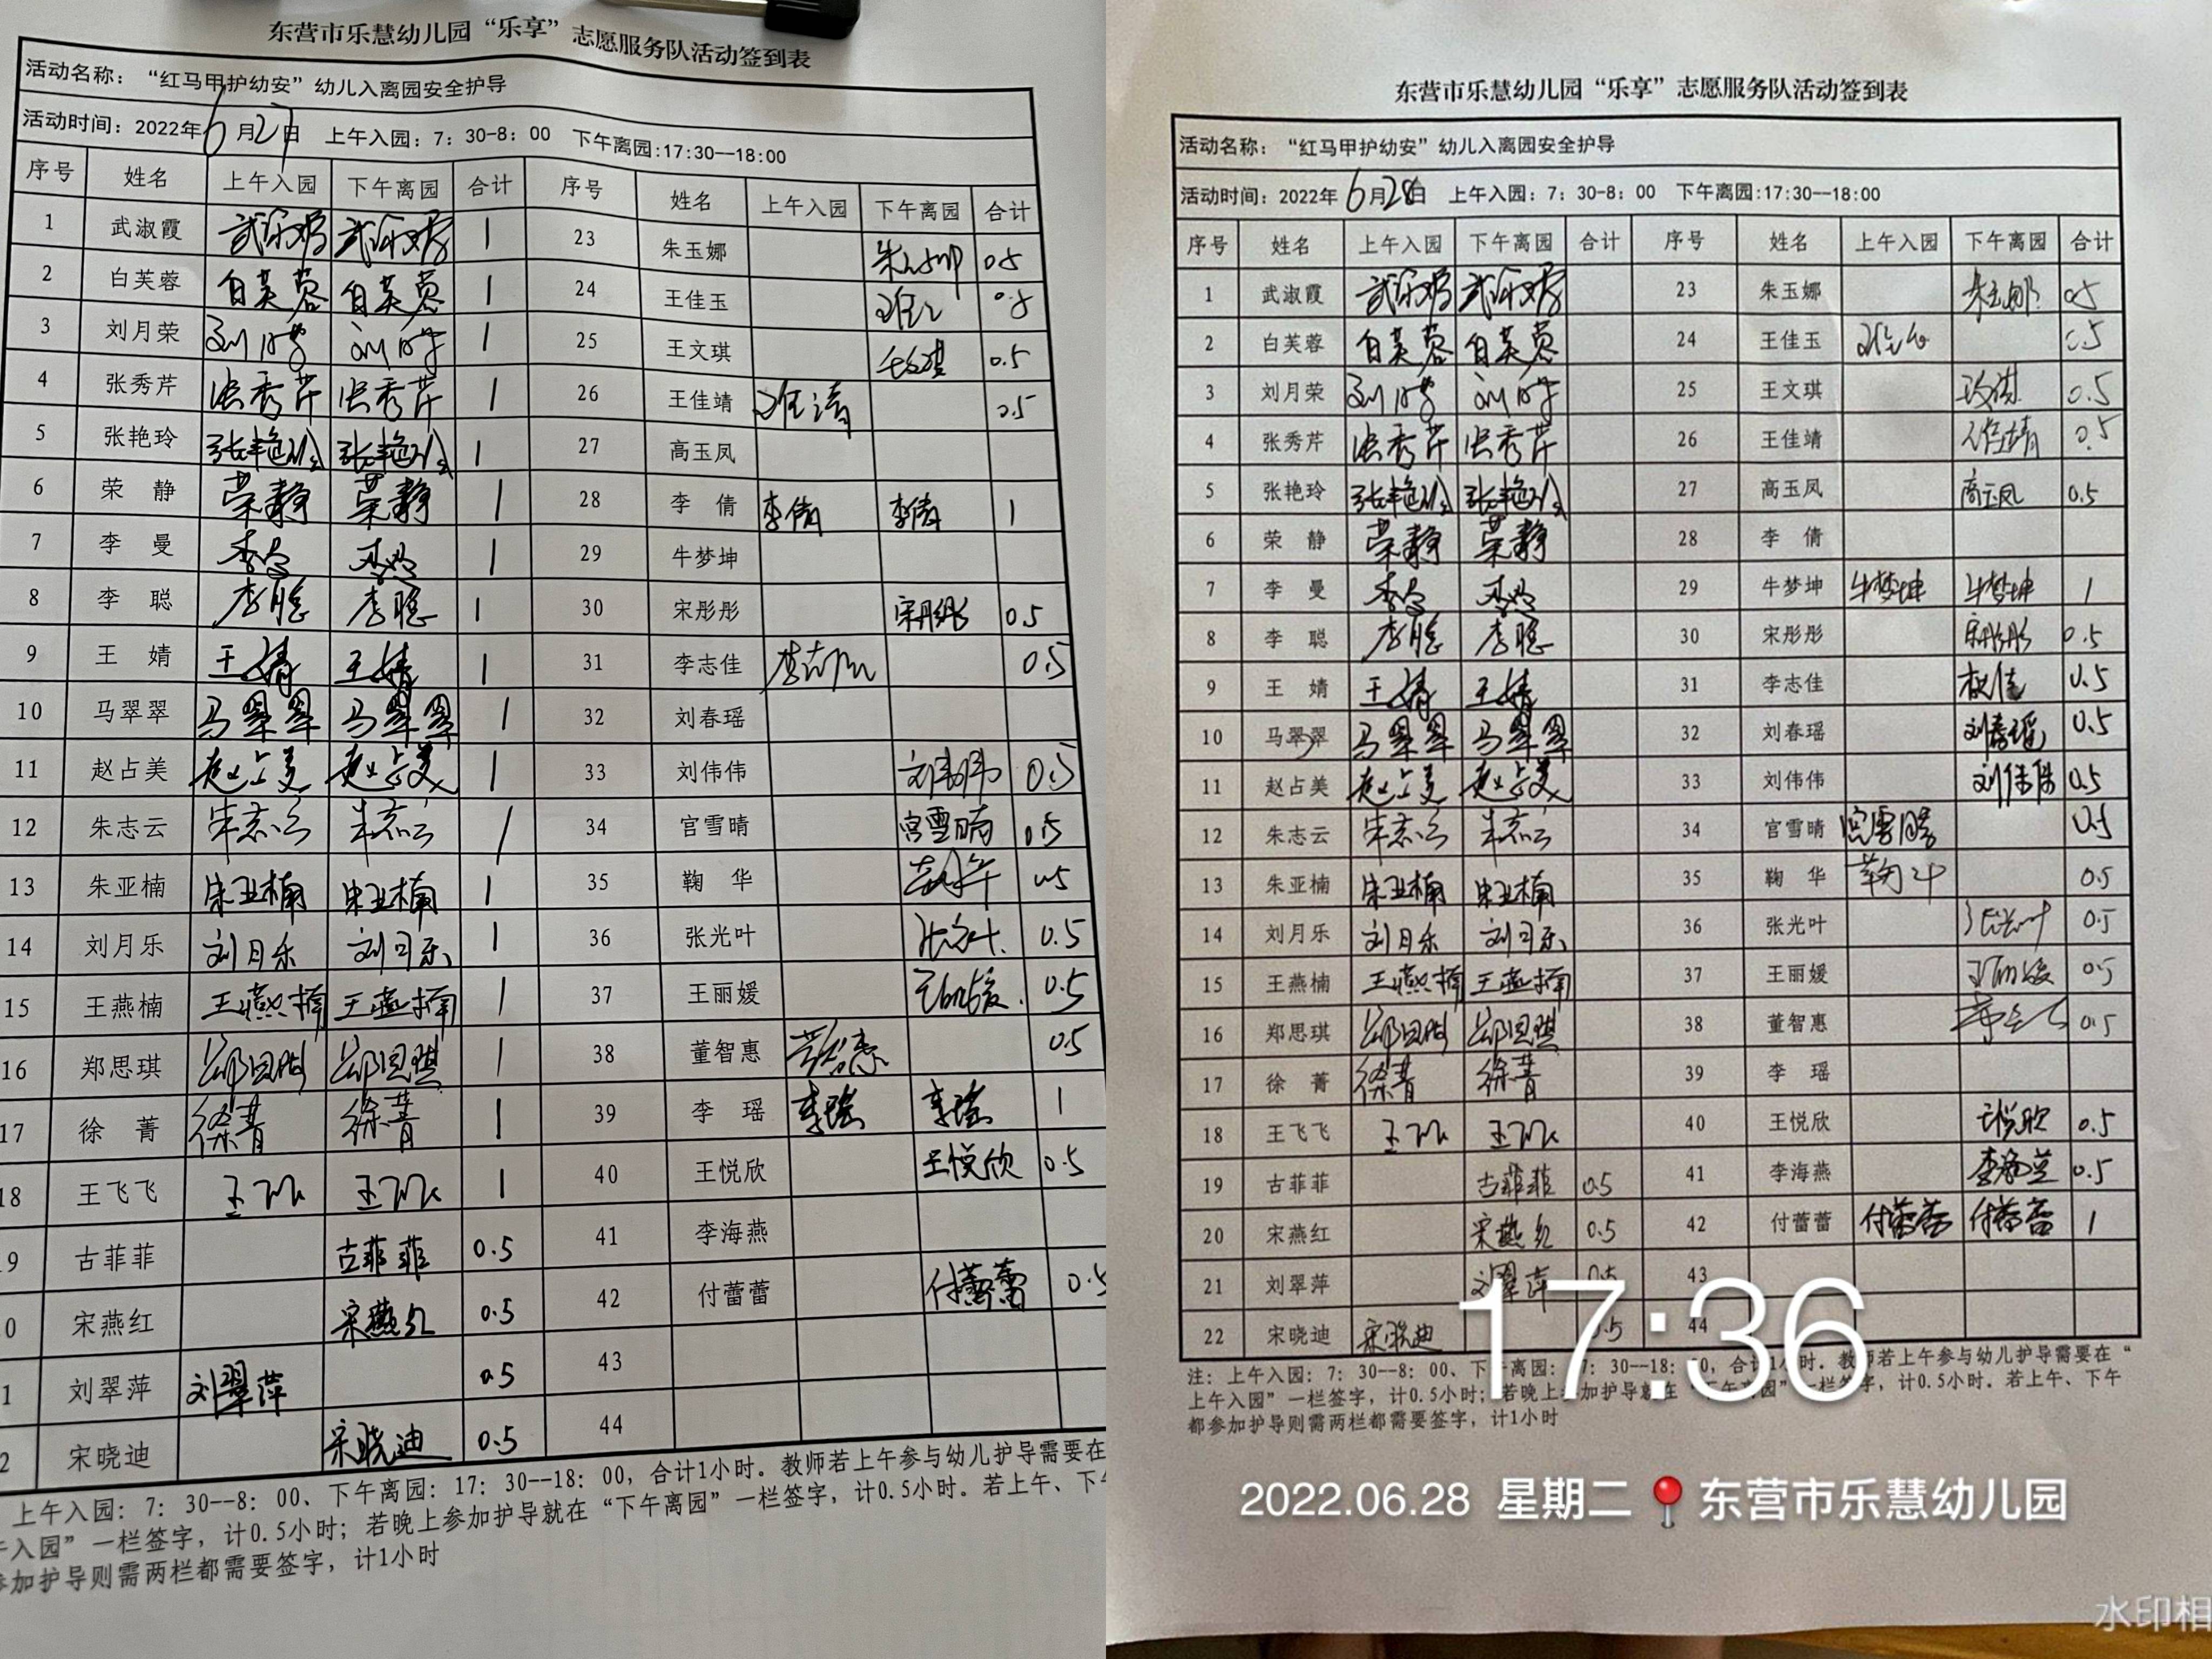 东营市乐慧幼儿园“乐享”志愿服务队活动签到表
活动名称：“红马甲护幼安”幼儿入离园安全护导
活动时间：2022年6月27日 上午入园：7：30-8：00 下午离园:17:30--18:00
序号 姓名 上午入园 下午离园 合计 序号 姓名 上午入园 下午离园 合计
1 武淑霞 1 23 朱玉娜 0.5
2 白芙蓉 白芙蓉 白芙蓉 1 24 王佳玉
3 刘月荣 1 25 王文琪 0.5
4 张秀芹 张秀芹 张秀芹 1 26 王佳靖 王佳靖 0.5
5 张艳玲 张艳玲 张艳玲 1 27 高玉凤
6 荣 静 荣静 荣静 1 28 李 倩 李倩 李倩 1
7 李 曼 李曼 李曼 1 29 牛梦坤
8 李 聪 李聪 李聪 1 30 宋彤彤 宋彤彤 0.5
9 王 婧 王婧 王婧 1 31 李志佳 0.5
10 马翠翠 马翠翠 马翠翠 1 32 刘春瑶
11 赵占美 赵占美 赵占美 1 33 刘伟伟 刘伟伟 0.5
12 朱志云 朱志云 朱志云 1 34 宫雪晴 宫雪晴 0.5
13 朱亚楠 朱亚楠 朱亚楠 1 35 鞠 华
14 刘月乐 刘月乐 刘月乐 1 36 张光叶 0.5
15 王燕楠 王燕楠 王燕楠 1 37 王丽媛 0.5
16 郑思琪 郑思琪 郑思琪 1 38 董智惠 0.5
17 徐 菁 徐菁 徐菁 1 39 李 瑶 李瑶 李瑶 1
18 王飞飞 王飞飞 王飞飞 1 40 王悦欣 王悦欣 0.5
9 古菲菲 古菲菲 0.5 41 李海燕
0 宋燕红 宋燕红 0.5 42 付蕾蕾 付蕾蕾 0.5
1 刘翠萍 刘翠萍 0.5 43
2 宋晓迪 宋晓迪 0.5 44
上午入园：7：30--8：00、下午离园：17：30--18：00，合计1小时。教师若上午参与幼儿护导需要在
午入园”一栏签字，计0.5小时；若晚上参加护导就在“下午离园”一栏签字，计0.5小时。若上午、下午
参加护导则需两栏都需要签字，计1小时
东营市乐慧幼儿园“乐享”志愿服务队活动签到表
活动名称：“红马甲护幼安”幼儿入离园安全护导
活动时间：2022年6月28日 上午入园：7：30-8：00 下午离园:17:30--18:00
序号 姓名 上午入园 下午离园 合计 序号 姓名 上午入园 下午离园 合计
1 武淑霞 23 朱玉娜 朱玉娜 0.5
2 白芙蓉 白芙蓉 白芙蓉 24 王佳玉 0.5
3 刘月荣 25 王文琪 0.5
4 张秀芹 张秀芹 张秀芹 26 王佳靖 王佳靖 0.5
5 张艳玲 张艳玲 张艳玲 27 高玉凤 高玉凤 0.5
6 荣 静 荣静 荣静 28 李 倩
7 李 曼 李曼 李曼 29 牛梦坤 牛梦坤 牛梦坤 1
8 李 聪 李聪 李聪 30 宋彤彤 宋彤彤 0.5
9 王 婧 王婧 王婧 31 李志佳 0.5
10 马翠翠 马翠翠 马翠翠 32 刘春瑶 刘春瑶 0.5
11 赵占美 赵占美 赵占美 33 刘伟伟 刘伟伟 0.5
12 朱志云 朱志云 朱志云 34 宫雪晴 宫雪晴 0.5
13 朱亚楠 朱亚楠 朱亚楠 35 鞠 华 鞠华 0.5
14 刘月乐 刘月乐 刘月乐 36 张光叶 张光叶 0.5
15 王燕楠 王燕楠 王燕楠 37 王丽媛 王丽媛 0.5
16 郑思琪 郑思琪 郑思琪 38 董智惠 0.5
17 徐 菁 徐菁 徐菁 39 李 瑶
18 王飞飞 王飞飞 王飞飞 40 王悦欣 王悦欣 0.5
19 古菲菲 古菲菲 0.5 41 李海燕 李海燕 0.5
20 宋燕红 宋燕红 0.5 42 付蕾蕾 付蕾蕾 付蕾蕾 1
21 刘翠萍 刘翠萍 0.5 43
22 宋晓迪 宋晓迪 0.5 44
注：上午入园：7：30--8：00、下午离园：17：30--18：00，合计1小时．教师若上午参与幼儿护导需要在“
上午入园”一栏签字，计0.5小时；若晚上参加护导就在“下午离园”一栏签字，计0.5小时．若上午、下午
都参加护导则需两栏都需要签字，计1小时
17:36
2022.06.28 星期二 东营市乐慧幼儿园
水印相